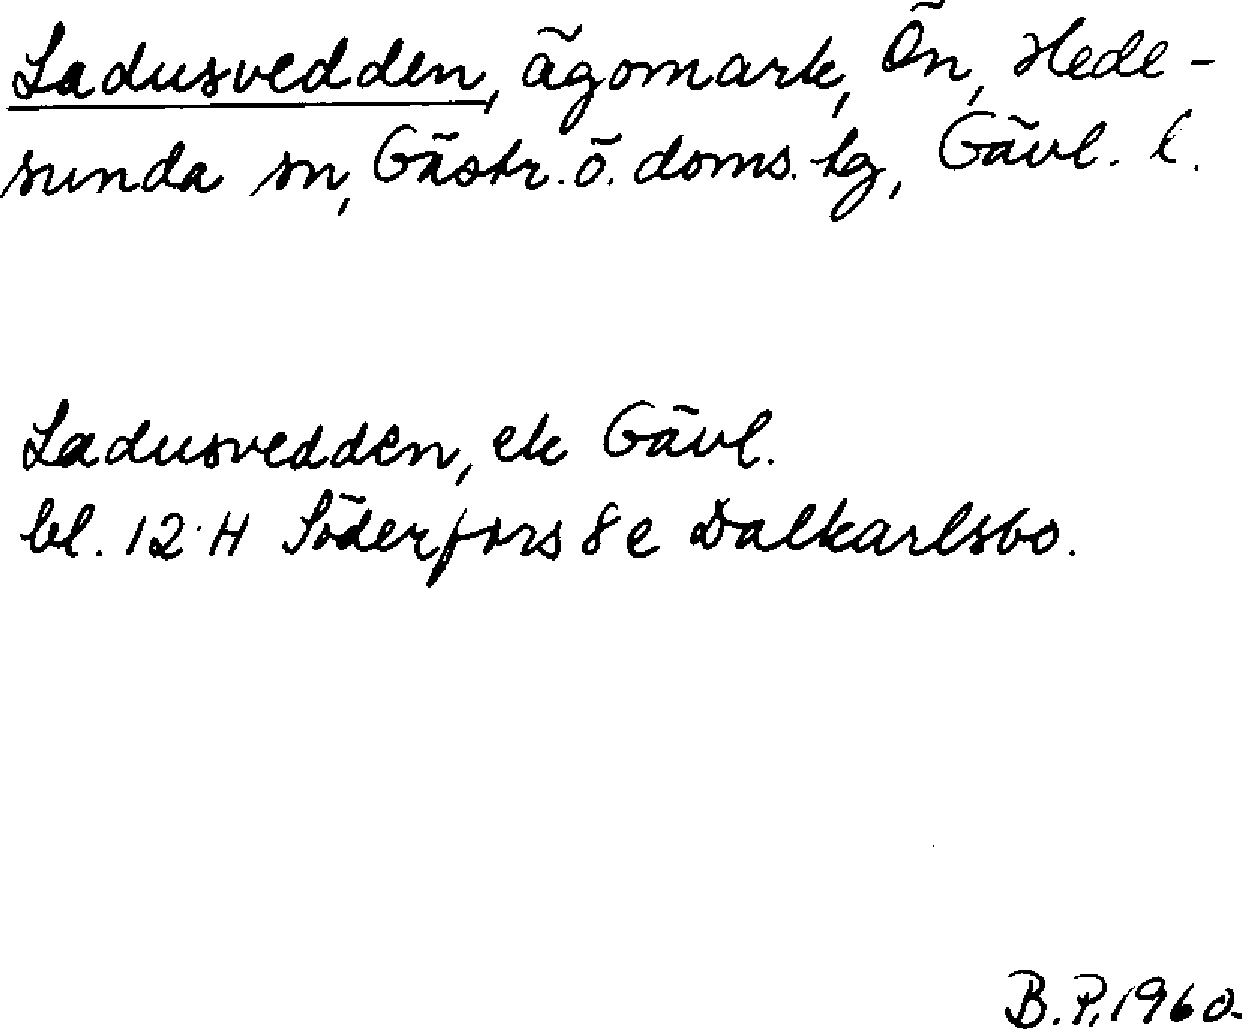 Ladusvedden, ägomark, Ön, Hede-
sunda sn, Gästr. ö. doms. lg, Gävl. l.
Ladusvedden, ek Gävl.
bl. 12 H Söderfors 8 e Dalkarlsbo.
B. P. 1960.